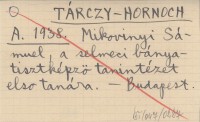 TÁRCZY-HORNOCH
A. 1938. Mikovinyi Sá-
muel, a selmeci bánya-
tisztképző tanintézet
első tanára. – Budapest.